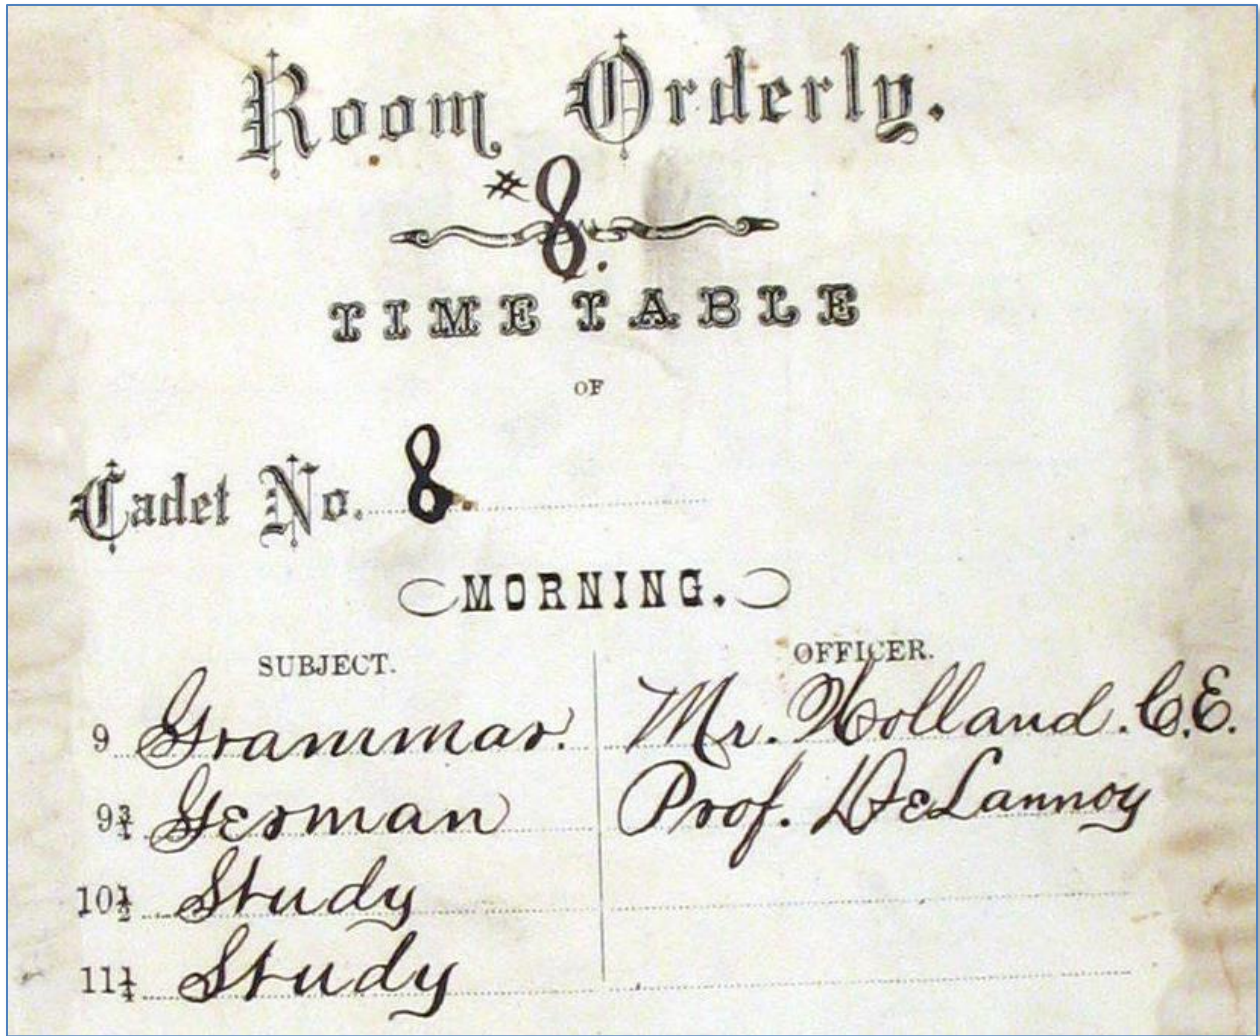 Room Orderly.
#8.
TIME TABLE
OF
Cadet No. 8
MORNING.
SUBJECT. OFFICER.
9 Grammar. Mr. Holland. C.E.
9¾ German Prof. DeLannoy
10½ Study
11¼ Study